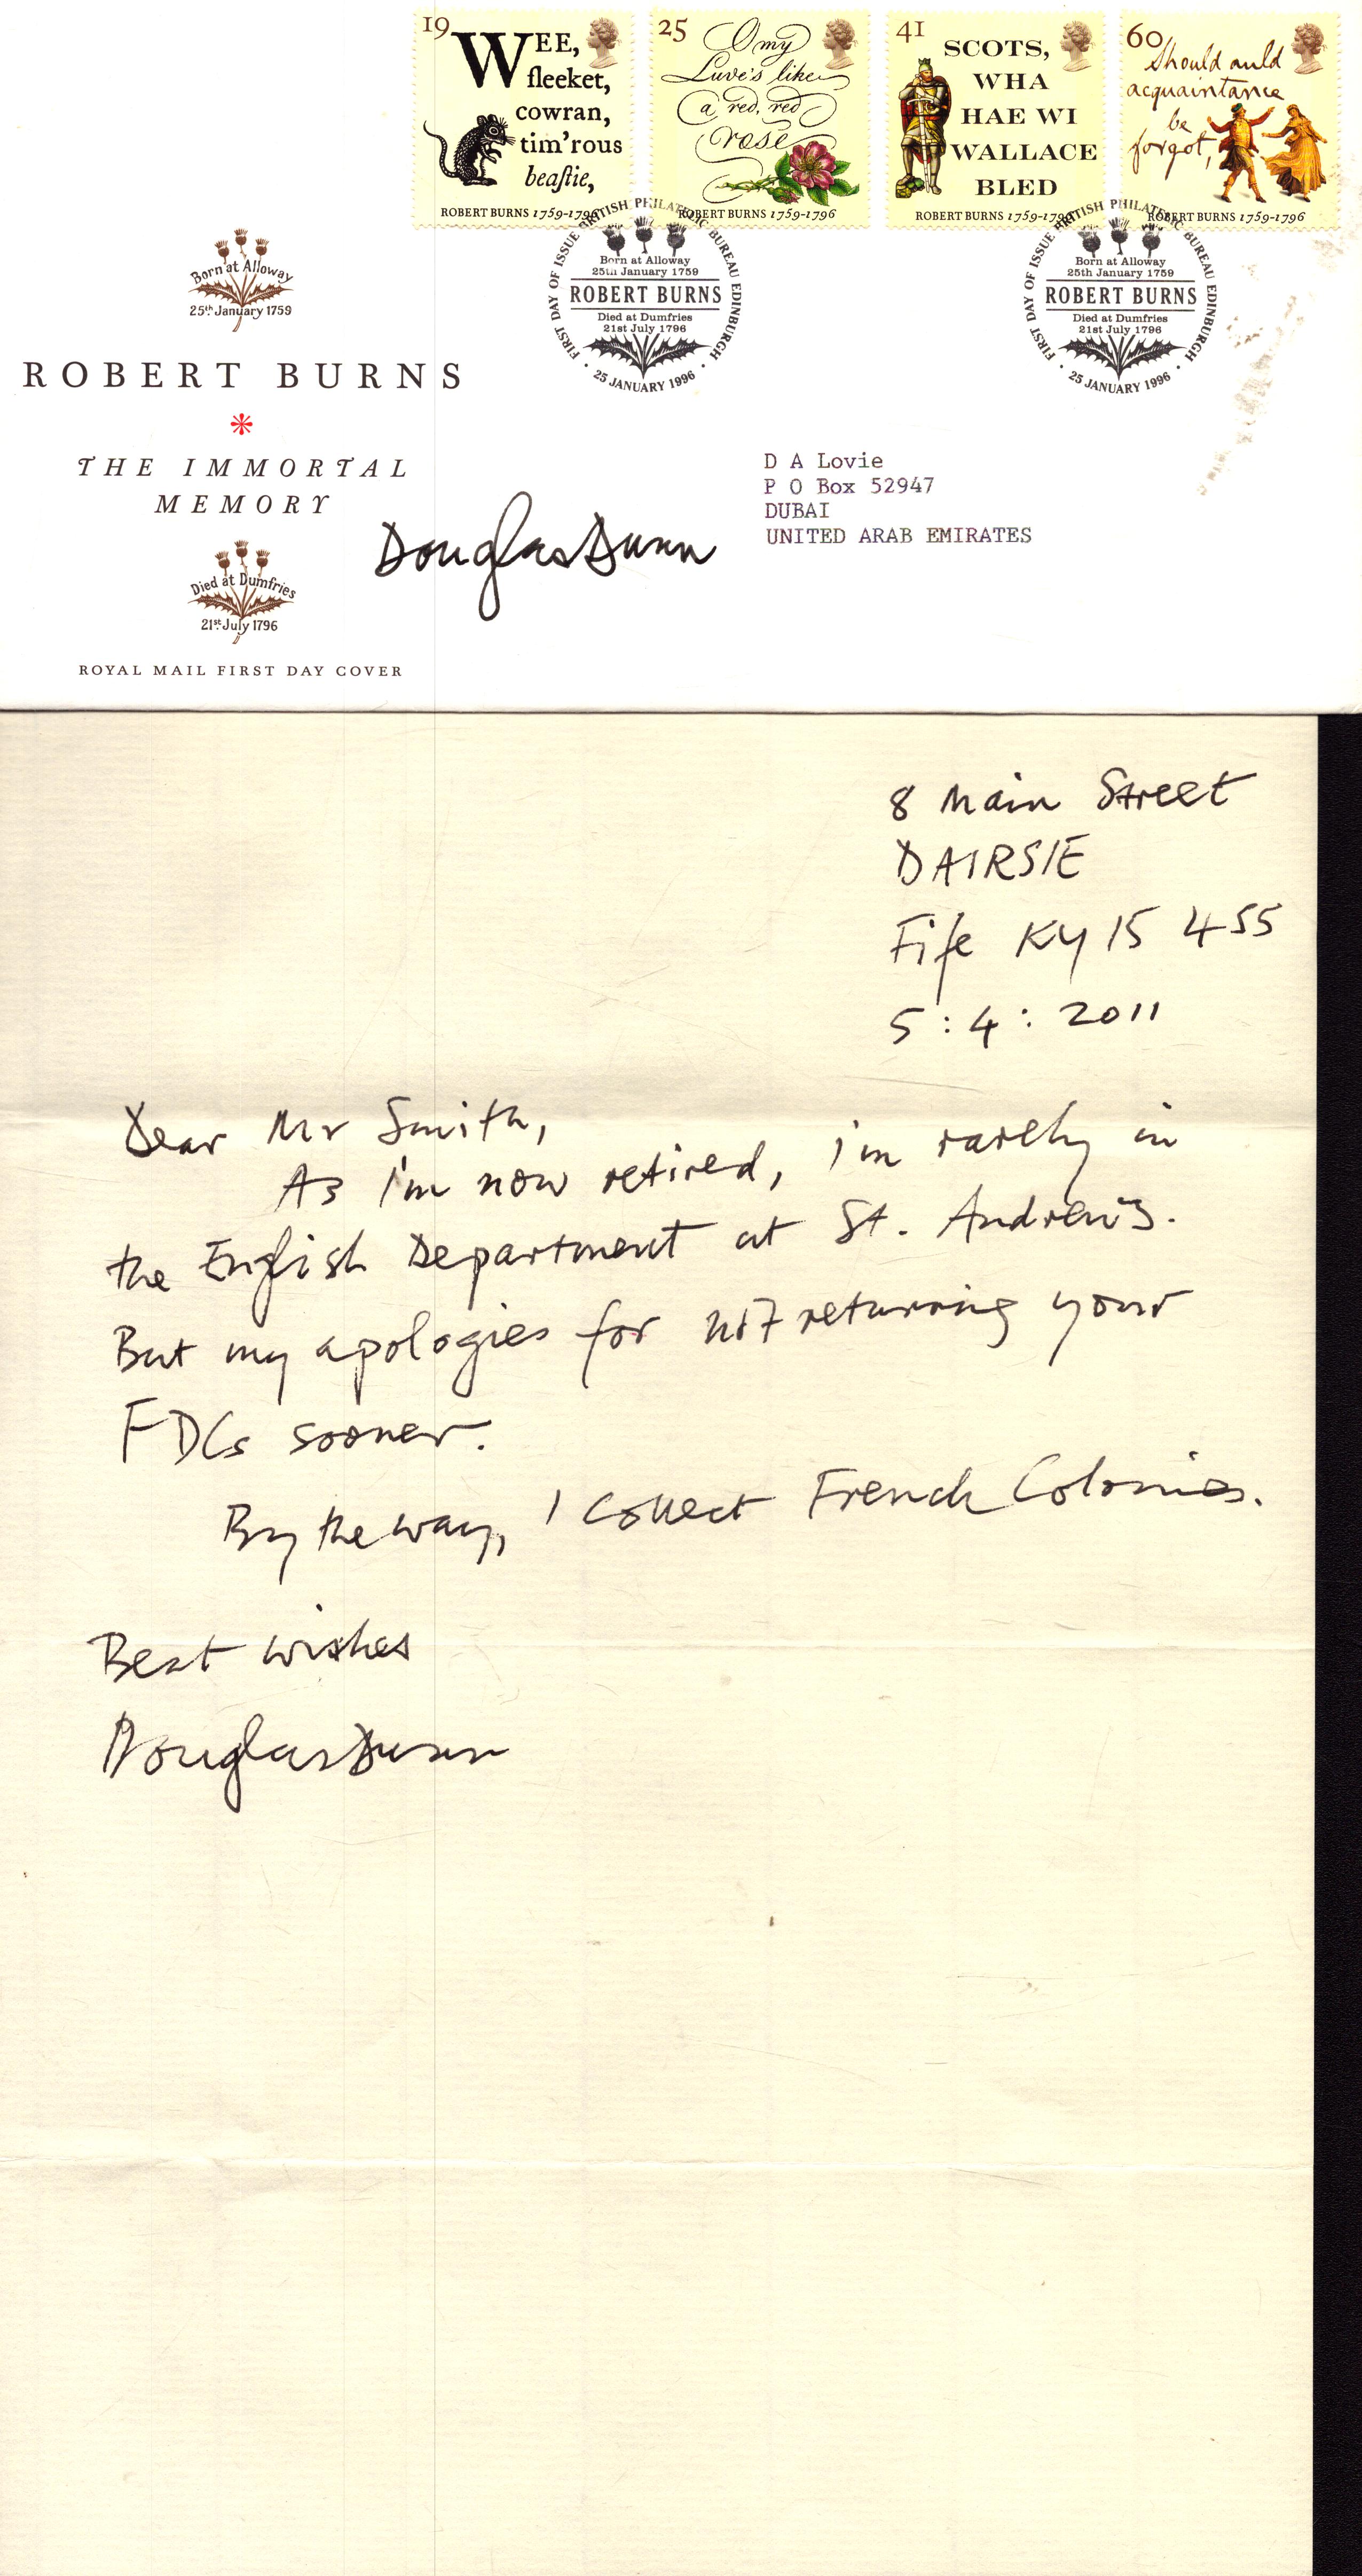 19
WEE,
fleeket,
cowran,
tim'rous
beaſtie,
ROBERT BURNS 1759-1796
25
O my
Luve's like
a red, red
rose
ROBERT BURNS 1759-1796
41
SCOTS,
WHA
HAE WI
WALLACE
BLED
ROBERT BURNS 1759-1796
60
Should auld
acquaintance
be
forgot,
ROBERT BURNS 1759-1796
FIRST DAY OF ISSUE BRITISH PHILATELIC BUREAU EDINBURGH
Born at Alloway
25th January 1759
ROBERT BURNS
Died at Dumfries
21st July 1796
· 25 JANUARY 1996 ·
FIRST DAY OF ISSUE BRITISH PHILATELIC BUREAU EDINBURGH
Born at Alloway
25th January 1759
ROBERT BURNS
Died at Dumfries
21st July 1796
· 25 JANUARY 1996 ·
Born at Alloway
25th January 1759
ROBERT BURNS
THE IMMORTAL
MEMORY
Died at Dumfries
21st July 1796
ROYAL MAIL FIRST DAY COVER
D A Lovie
P O Box 52947
DUBAI
UNITED ARAB EMIRATES
Douglas Dunn
8 Main Street
DAIRSIE
Fife KY15 4SS
5:4:2011
Dear Mr Smith,
As I'm now retired, I'm rarely in
the English Department at St. Andrews.
But my apologies for not returning your
FDCs sooner.
By the way, I collect French Colonies.
Best wishes
Douglas Dunn